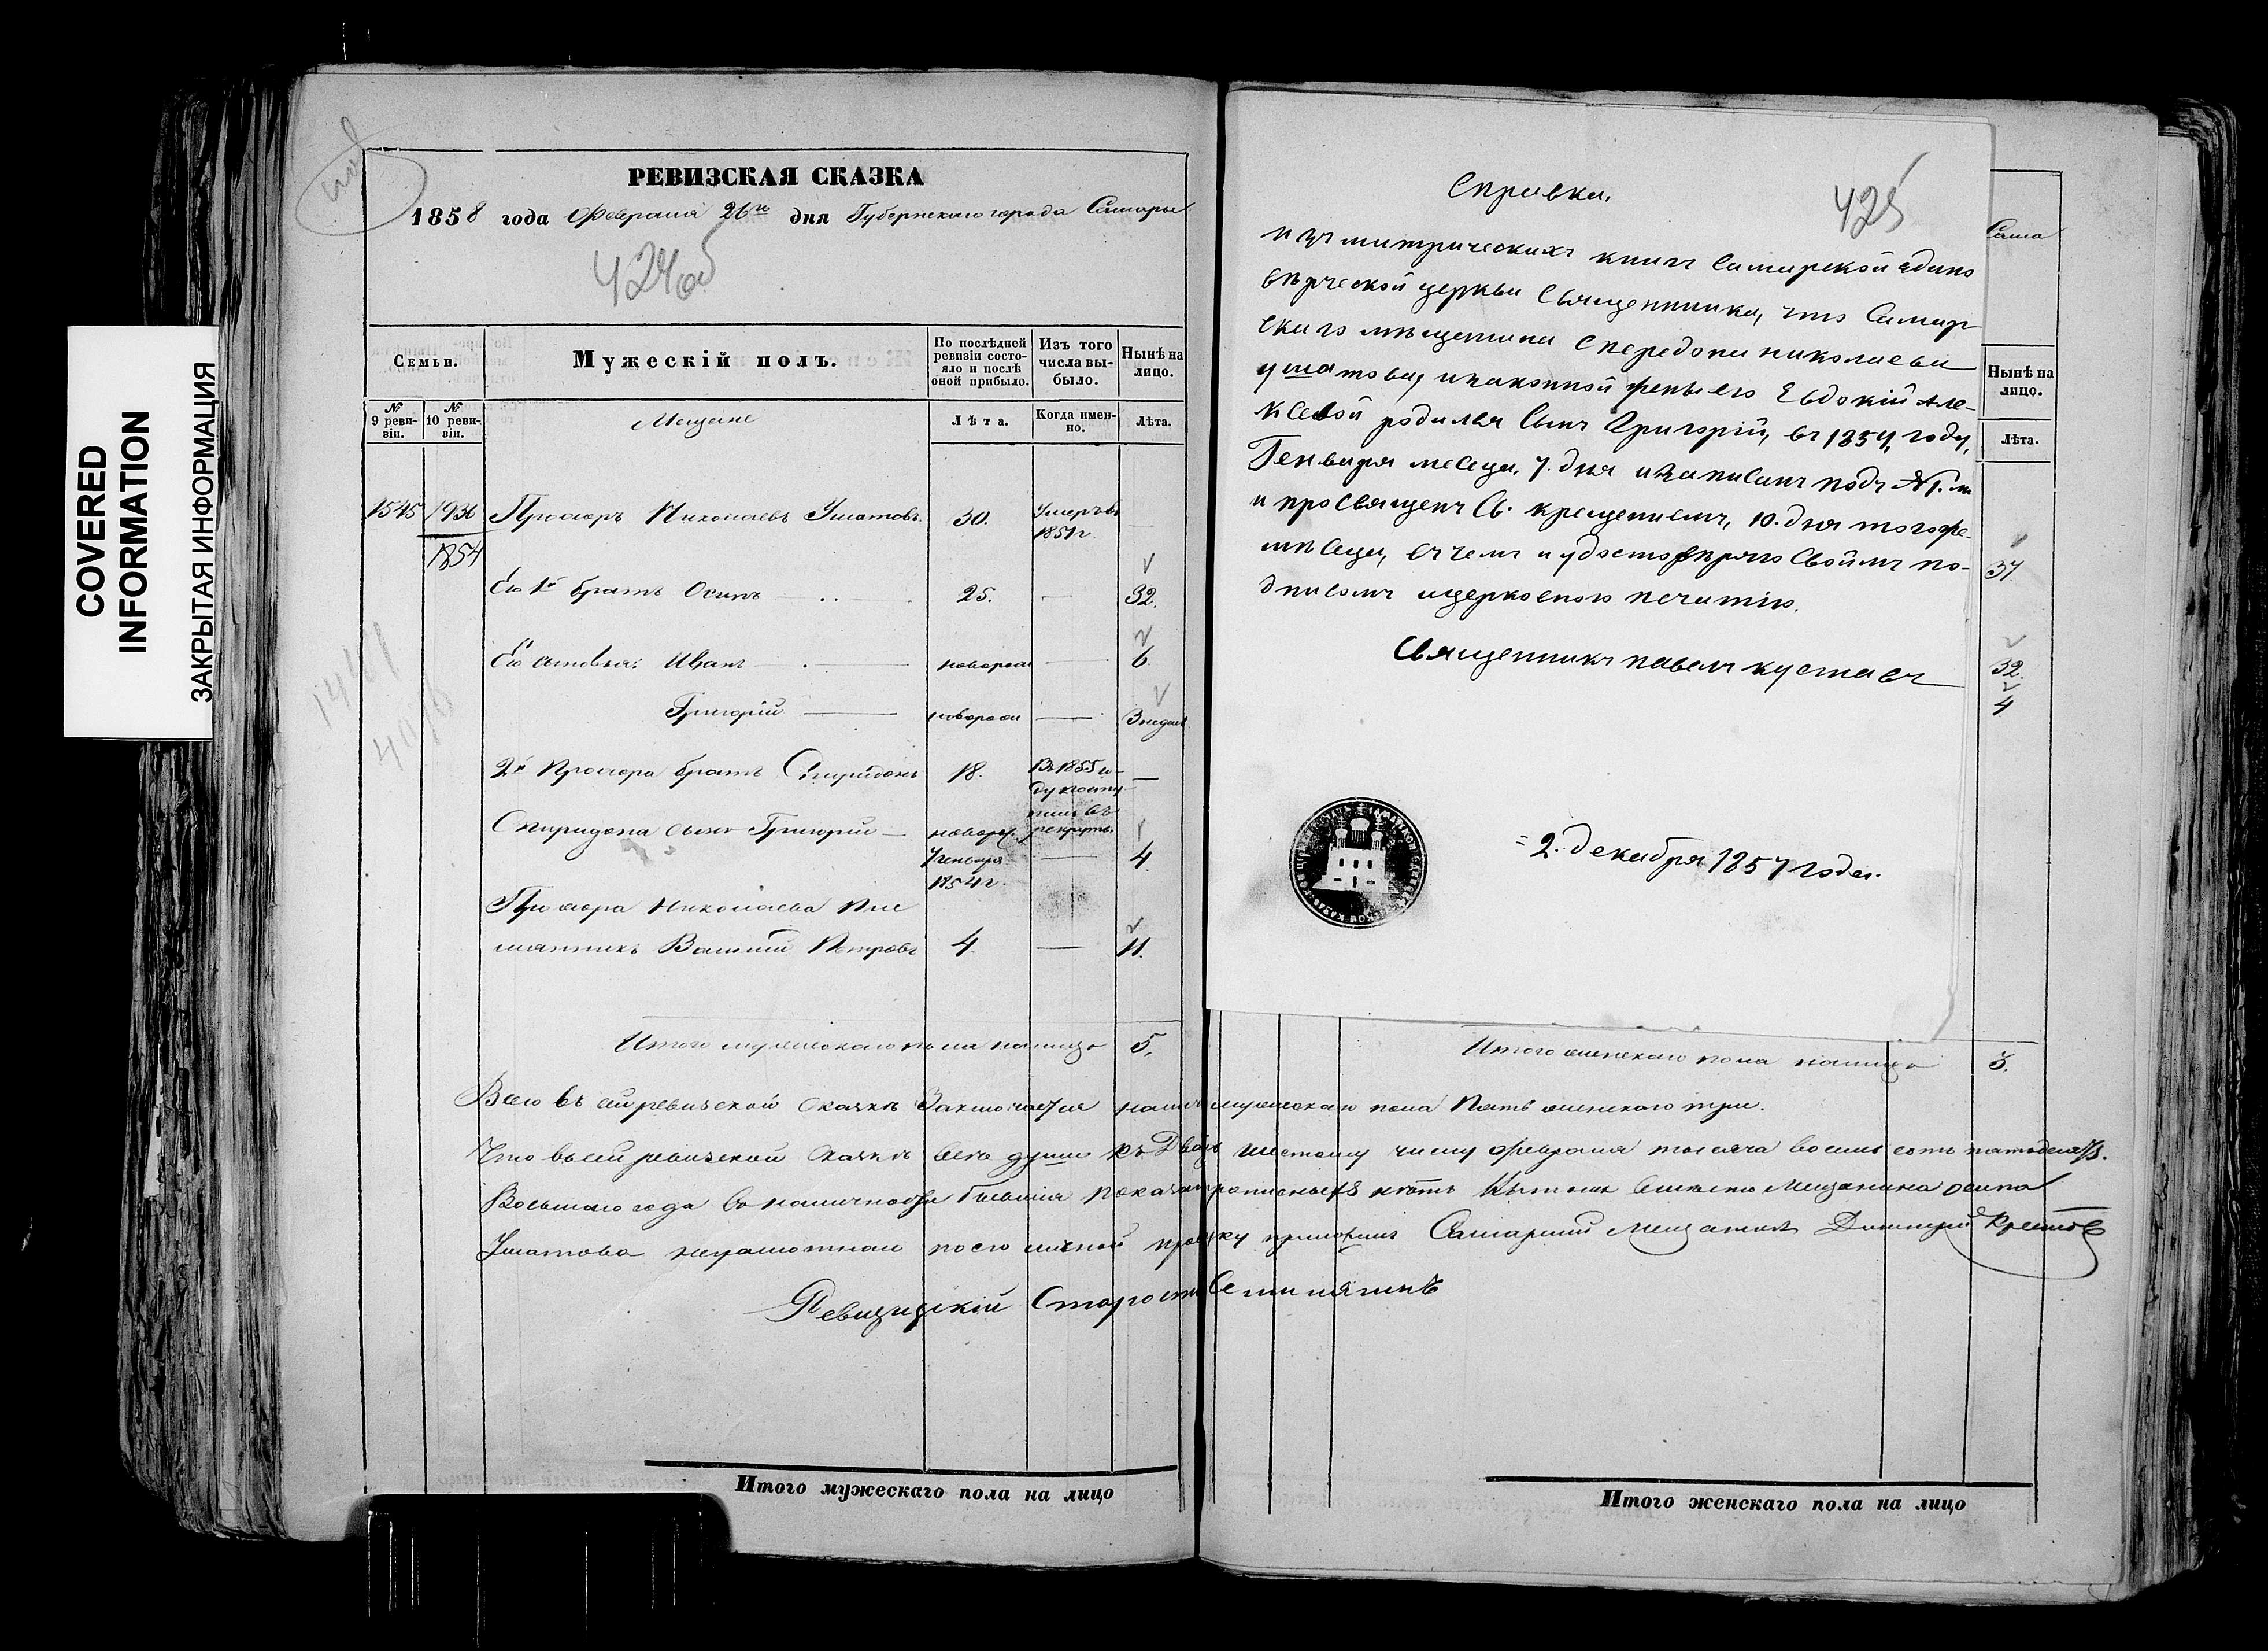 COVERED
INFORMATION
ЗАКРЫТАЯ ИНФОРМАЦИЯ
РЕВИЗСКАЯ СКАЗКА
1858 года Февраля 26го дня Губернскаго города Самары
424об
Семьи.
Мужескій полъ.
По послѣдней ревизіи состояло и послѣ оной прибыло.
Изъ того числа выбыло.
Нынѣ на лицо.
№ 9 ревизіи.
№ 10 ревизіи.
Мещане
Лѣта.
Когда именно.
Лѣта.
1545 1936 Прохоръ Николаевъ Ушатовъ 30. Умеръ въ 1851г
1854
Его 1й братъ Осипъ 25. — 32.
Его сыновья: Иванъ — новорож — 6.
Григорій — новорож — 3 недел.
2й Прохора братъ Спиридонъ 18. Въ 1855 году поступилъ въ рекруты. —
Спиридона сынъ Григорій — новорож. 7 генваря 1854г. — 4.
Прохора Николаева Пле
мянникъ Василий Петровъ 4. — 11.
Итого мужескаго пола налицо 5.
Справка.
425
изъ митрическихъ книгъ Самарской едино
вѣрческой церкви Священника, что Самар
скаго мѣщанина Спередона николаева
ушатова, и законной жены его Евдокій Але-
ксевой родился Сынъ Григорий, въ 1854, году,
Генваря месеца, 7. дня и записанъ подъ №1.м
и просвященъ Св. крещениемъ, 10. дня тогоже
мѣсеца, въ чемъ и удостовѣряю Свойимъ по-
дписомъ ицерковною печатію.
Священникъ павелъ кустовъ
=2. декабря 1857 года.
Сама
Нынѣ на лицо.
Лѣта.
37
32.
4
Итого женскаго пола налицо 3.
Всего въ сей ревизской сказкѣ Заключается налицо мужескаго пола Пять женскаго три.
Что въ сей ревизской сказкѣ всѣ души къ Двадц шестому числу февраля тысяча восемь сотъ пятьдесятъ
Восьмаго года въ наличности бывшія Показаны Мещанина осипа
Ушатова неграмотнаго по его личной прозьбу приложилъ Самарский Мещанинъ Дмитрий
Ревизиский Староста
Итого мужескаго пола на лицо
Итого женскаго пола на лицо